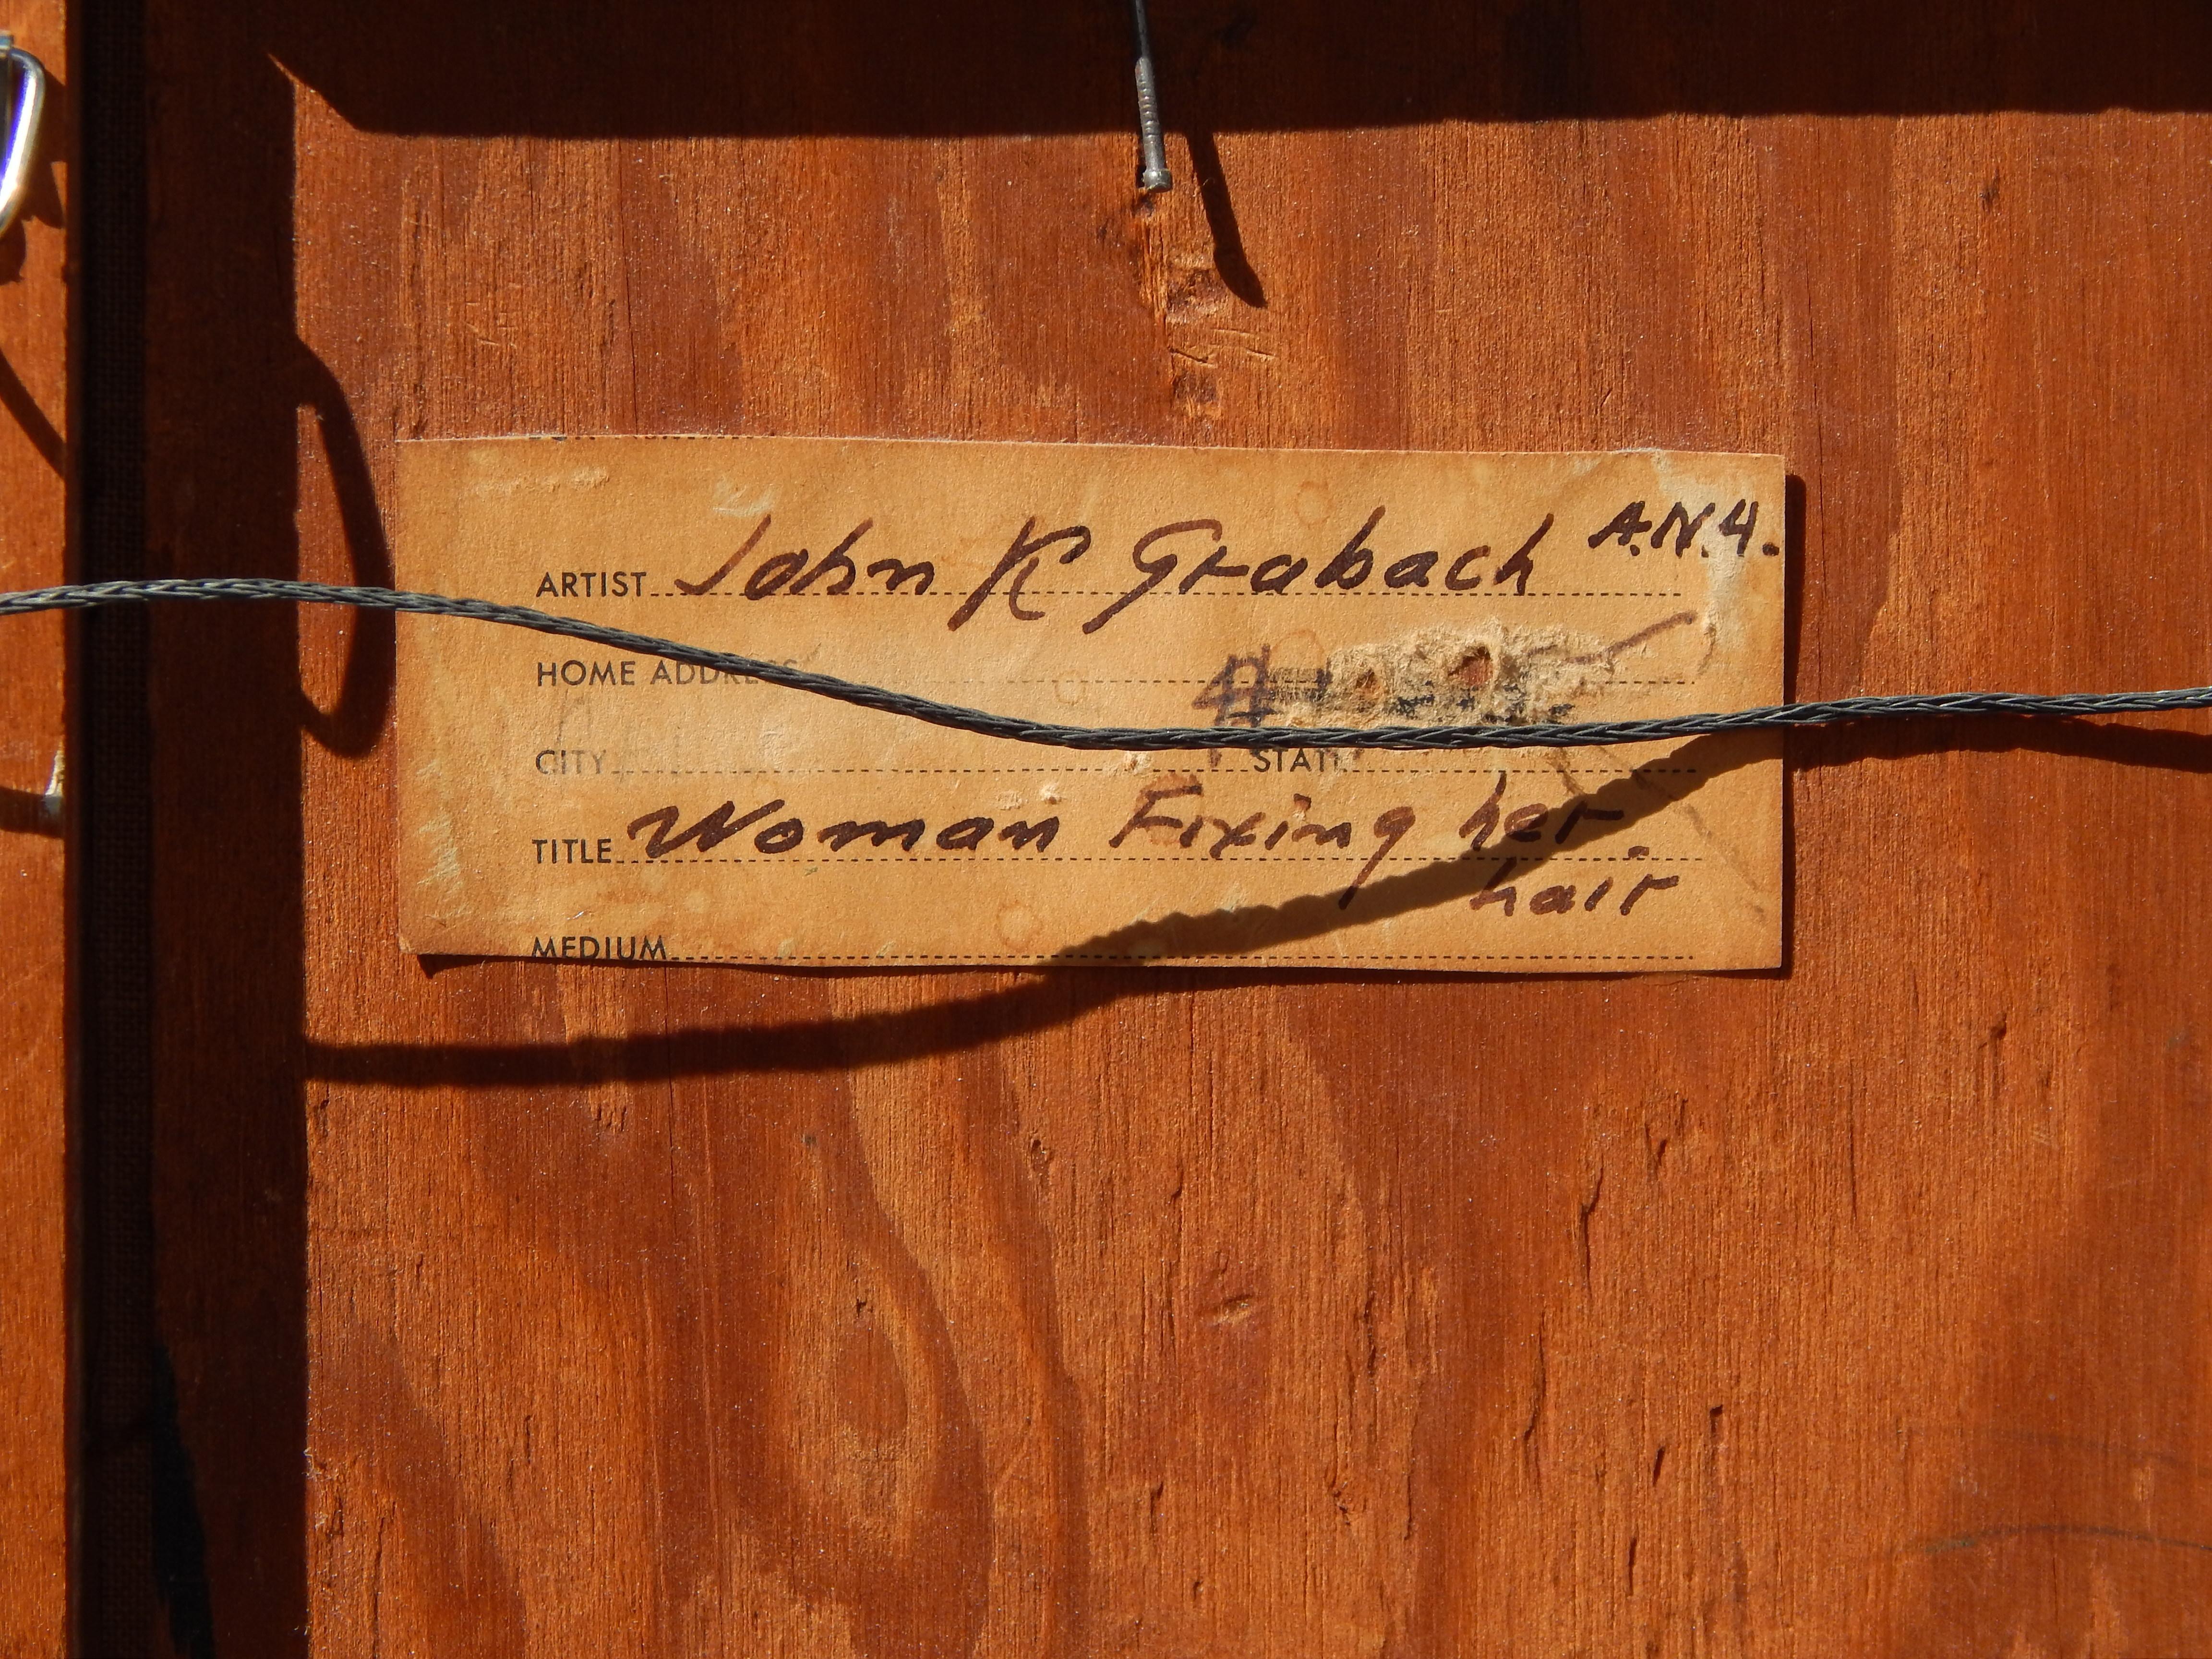 ARTIST John R Grabach A.N.A.
HOME ADDRESS
CITY STATE
TITLE Woman Fixing her
hair
MEDIUM